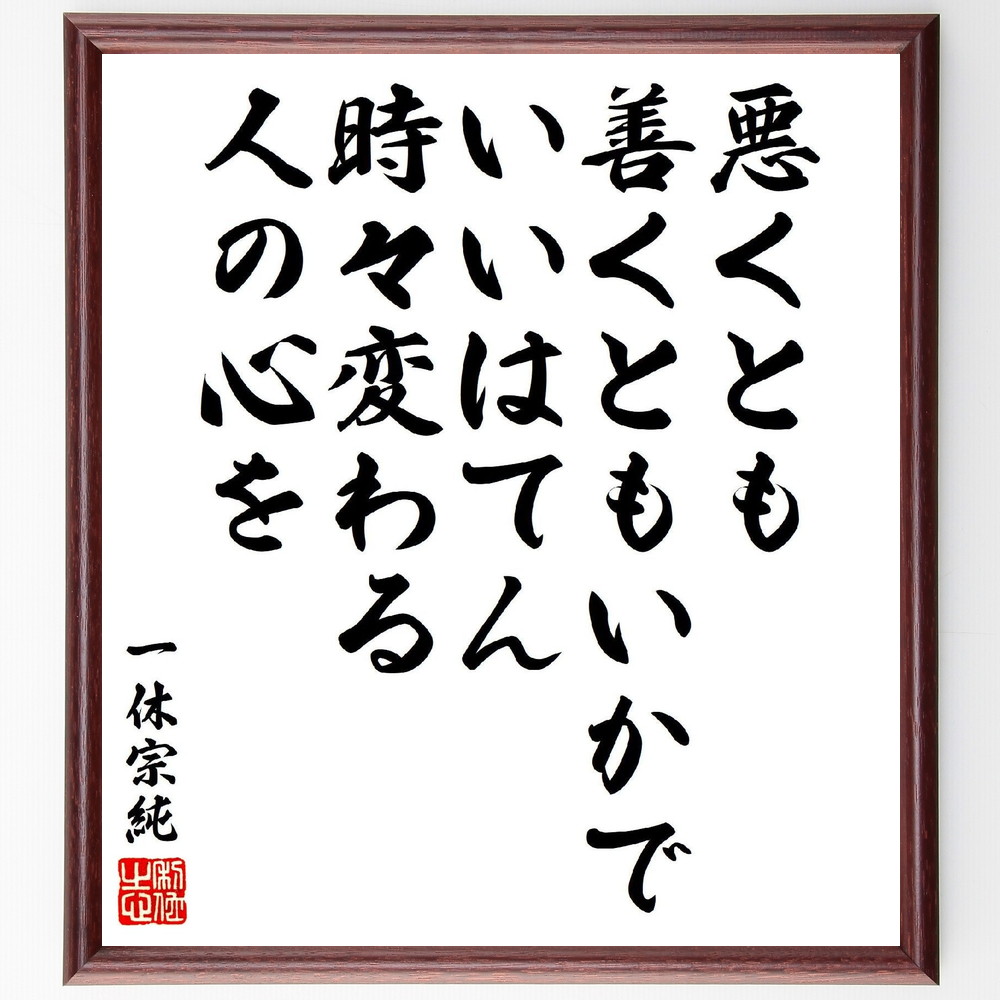 悪くとも
善くともいかで
いいはてん
時々変わる
人の心を
一休宗純